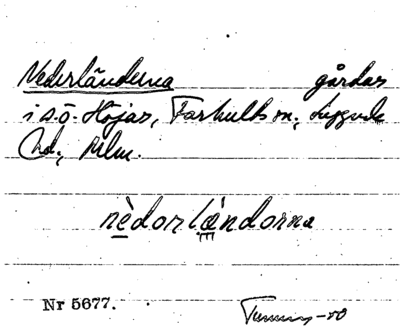 Nederländerna gårdar
i s.ö. Höjar, Farhults sn, Luggude
hd, Mlm.
nèdorlǽndorna
Nr 5677.